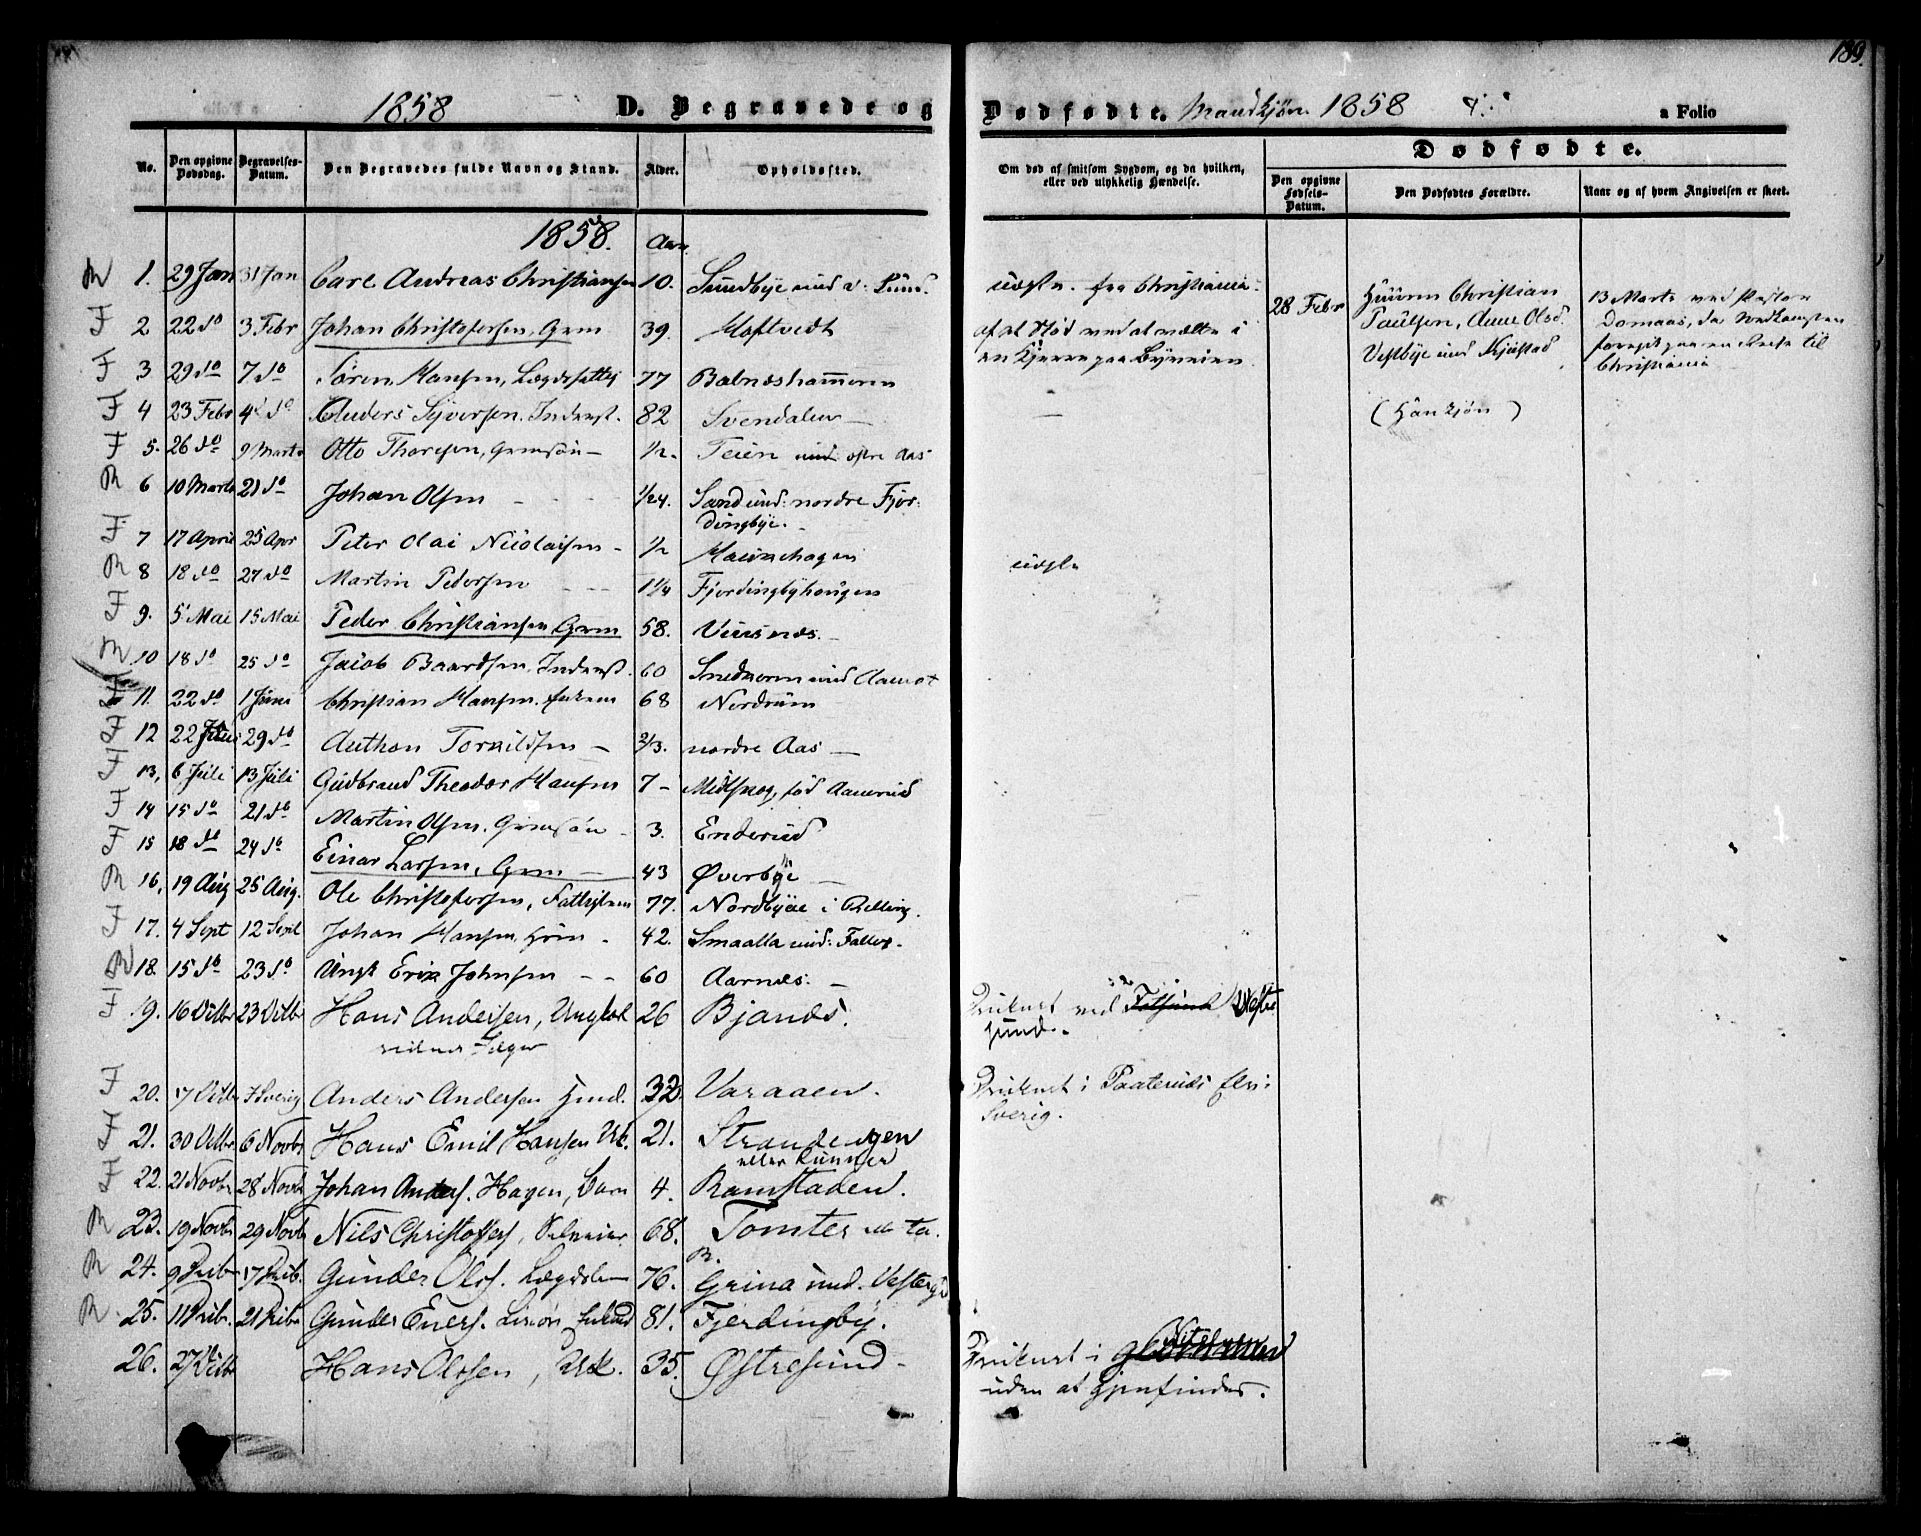 189.
1858 D. Begravede og Dødfødte. Mandkjøn 1858 a Folio
No. Den opgivne Dødsdag. Begravelses-Datum. Den Begravedes fulde Navn og Stand. Alder. Opholdssted.
Om død af smitsom Sygdom, og da hvilken, eller ved ulykkelig Hændelse.
Dødfødte.
Den opgivne Fødsels-Datum. Den Dødfødtes Forældre. Naar og af hvem Angivelsen er skeet.
1858. Aar.
R 1. 29 Jan 31 Jan Carl Andreas Christiansen 10. Sundbye
F 2 22 do 3 Febr Johan Christofersen, Grm 39. Hoftvedt
F 3 29 do 7 do Søren Hansen, Lægdsfattig 77 Babneshammeren
F 4 23 Febr 4 do Anders Syversen, Inderst. 82 Svendalen
F 5. 26 do 9 Marts Otto Thoresen, Grmsøn 1/2 Teien und østre Aas
R 6 10 Marts 21 do Johan Olsen 1/24. Sand und: nordre Fjer-
dingbye.
F 7 17 April 25 Apr Peter Olai Nicolaisen 1/2
R 8 18 do 27 do Martin Pedersen 1 1/4 Fjerdingbyhougen
F 9. 5 Mai 15 Mai Peder Christiansen Grm 58.
R 10 18 do 25 do Jacob Baardsen, Inderst. 60
F 11. 22 do 1 Juni Christian Hansen 68 Nordrum
F 12 22 Juni 29 do Anthon Torkildsen 2/3. nordre Aas
F 13. 6 Juli 13 Juli Gudbrand Theodor Hansen 7 Midtskog, fød Aamerud
F 14 15 do 21 do Martin Olsen, Grmsøn 3. Enderud
F 15 18 do 24 do Einar Larsen, Grm 43 Øverbye
R 16. 19 Aug 25 Aug. Ole Christofersen, Fattiglem 77. Nordbye i Rælling.
F 17. 4 Sept 12 Sept Johan Hansen, Hsm 42. Smaalla und: Faller.
R 18. 15 do 23 do Ungk Erik Johnsen 60 Aarnes.
F 19. 16 Octbr 23 Octbr Hans Andersen, Ungkel 26 Bjanes.
F 20. 17 Octbr I Sverig Anders Andersen 32. Varaaen.
F 21. 30 Octbr 6 Novbr Hans Emil Hansen Uk. 21. Strandengen
eller Runner
F 22. 21 Novbr 28 Novbr Johan Anders. Hagen, Barn 4. Ramstaden.
R 23. 19 Novbr 29 Novbr Nils Christoffers. Selveier 68. Tomter
R.
R 24. 9 Debr 17 Debr. Gunder Ols. Lægdslem 76. Grina und. Vesterg
R 25. 11 Debr. 21 Debr Gunder Eners. 81. Fjerdingby.
26. 27 Octbr Hans Olssen, Uk. 35. Østresund
udslæt fra Christiania
af at Stød ved at vælte i
en Kjerre paa Byveien
28 Febr
Husm Christian
Paulsen, Anne Olsd.
Vestbye und Mjøstad
(Han kjøn)
13 Marts ved Pastor
Domaas, da Nedkomsten
foregik paa en Reise til
Christiania
Druknet ved Fetsund Vester
sund.
Druknet i Paaterud Elv i
Sverig.
Druknet i Glommen
uden at gjenfindes.